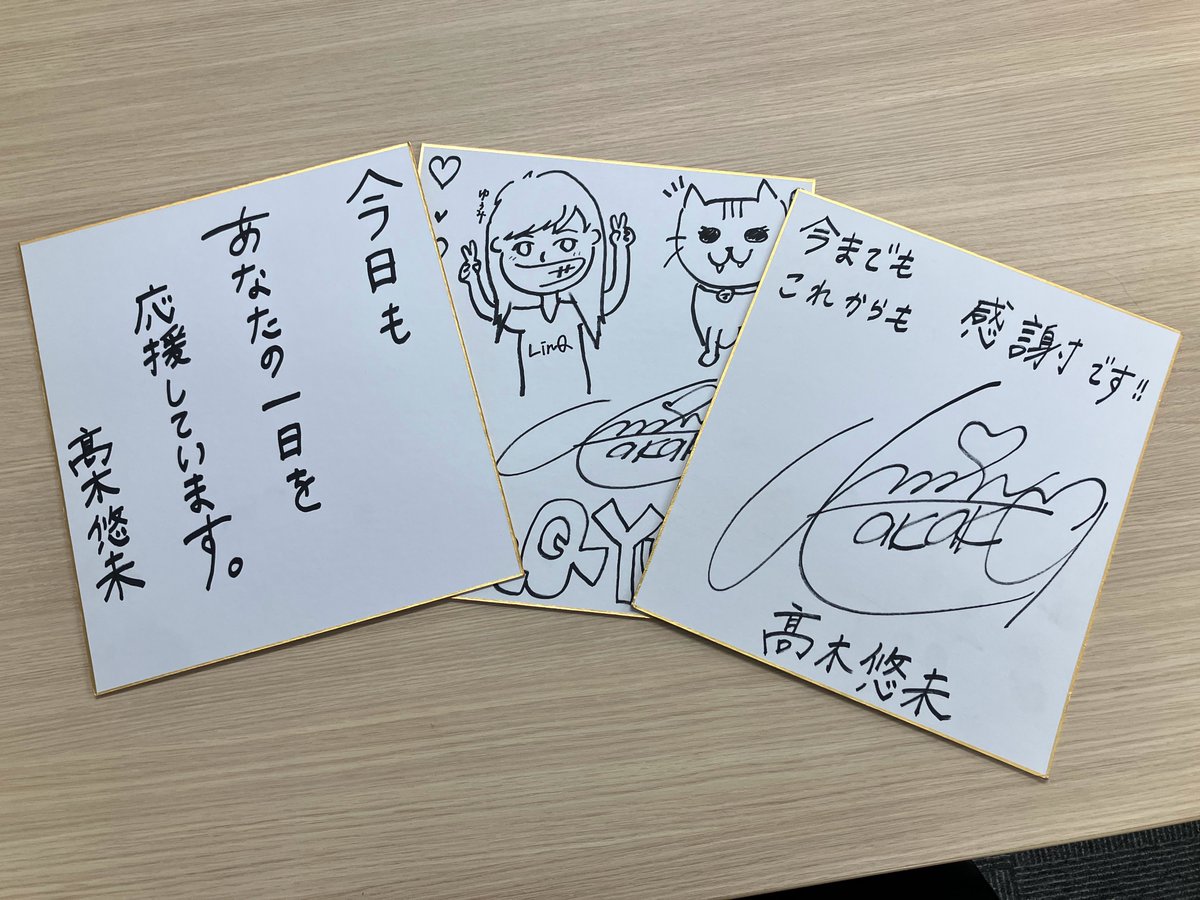 今日も
あなたの一日を
応援しています。
髙木悠未
ゆうみ
LinQ
今までも
これからも
感謝です!!
akaki
髙木悠未